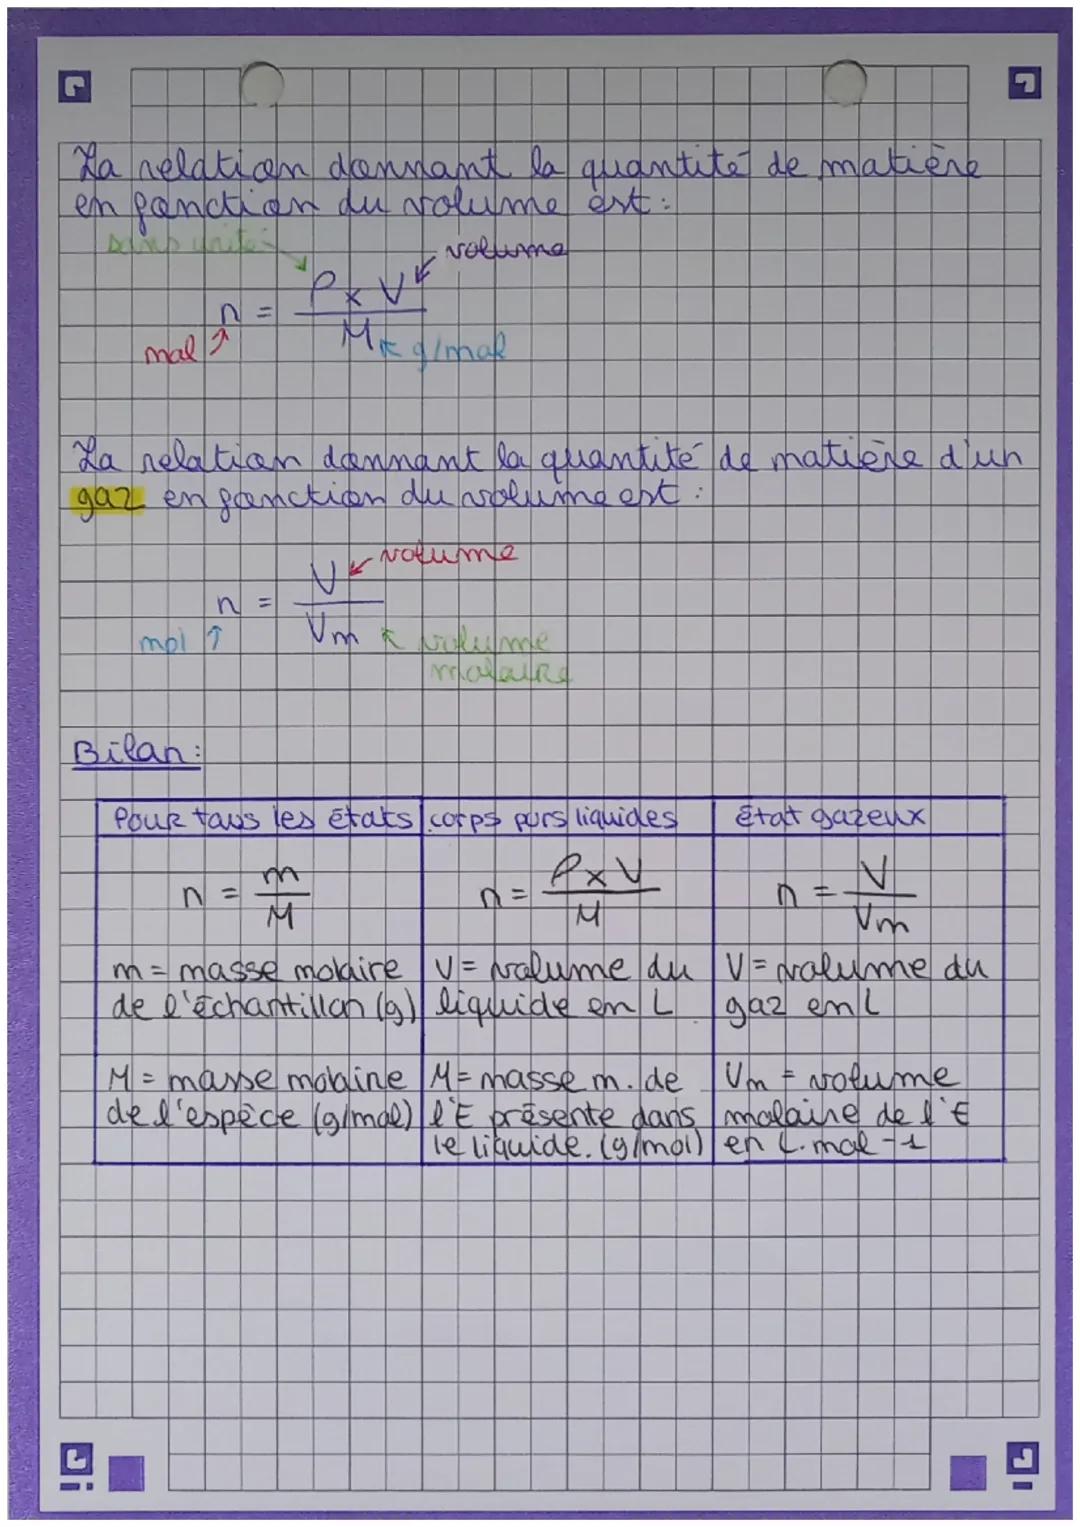 La relation donnant la quantité de matière
en fonction du volume est:
sans unité
volume
n = ρ x V / M
mol
g/mol
La relation donnant la quantité de matière d'un
gaz en fonction du volume est:
volume
n = V / Vm
mol
volume
molaire
Bilan:
Pour tous les états | corps purs liquides | état gazeux
n = m / M | n = ρ x V / M | n = V / Vm
m = masse molaire | V = volume du | V = volume du
de l'échantillon (g) | liquide en L | gaz en L
M = masse molaire | M = masse m. de | Vm = volume
de l'espèce (g/mol) | l'E présente dans | molaire de l'E
le liquide. (g/mol) | en L.mol-1